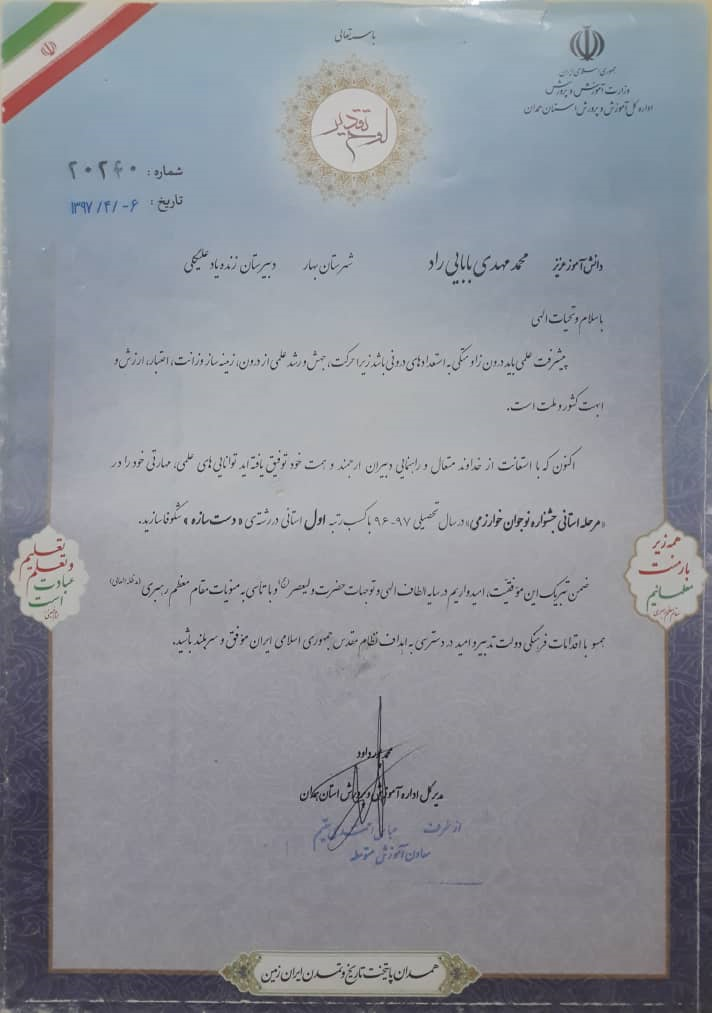 باسمه تعالی
جمهوری اسلامی ایران
وزارت آموزش و پرورش
اداره کل آموزش و پرورش استان همدان
لوح تقدیر
شماره : ۲۰۲۴۰
تاریخ : ۱۳۹۷/۴/-۶
دانش آموز عزیز محمد مهدی بابایی راد شهرستان بهار دبیرستان زنده یاد علیخانی
با سلام و تحیات الهی
پیشرفت علمی باید درون زا و متکی به استعدادهای درونی باشد زیرا حرکت، جهش و رشد علمی از درون، زمینه ساز وزانت، اعتبار، ارزش و
ابهت کشور و ملت است.
اکنون که با استعانت از خداوند متعال و راهنمایی دبیران ارجمند و همت خود توفیق یافته اید توانایی های علمی، مهارتی خود را در
«مرحله استانی جشنواره نوجوان خوارزمی» در سال تحصیلی ۹۷-۹۶ با کسب رتبه اول استانی در رشته ی « دست سازه » شکوفا سازید.
ضمن تبریک این موفقیت، امیدواریم در سایه الطاف الهی و توجهات حضرت ولیعصر (عج) و با تأسی به منویات مقام معظم رهبری (مدظله العالی)
همسو با اقدامات فرهنگی دولت تدبیر و امید در دسترسی به اهداف نظام مقدس جمهوری اسلامی ایران موفق و سربلند باشید.
همه زیر
بار منت
معلمانیم
مقام معظم رهبری
تعلیم
و تعلم
عبادت
است
محمد پورداود
مدیرکل اداره آموزش و پرورش استان همدان
از طرف
معاون آموزش متوسطه
همدان پایتخت تاریخ و تمدن ایران زمین